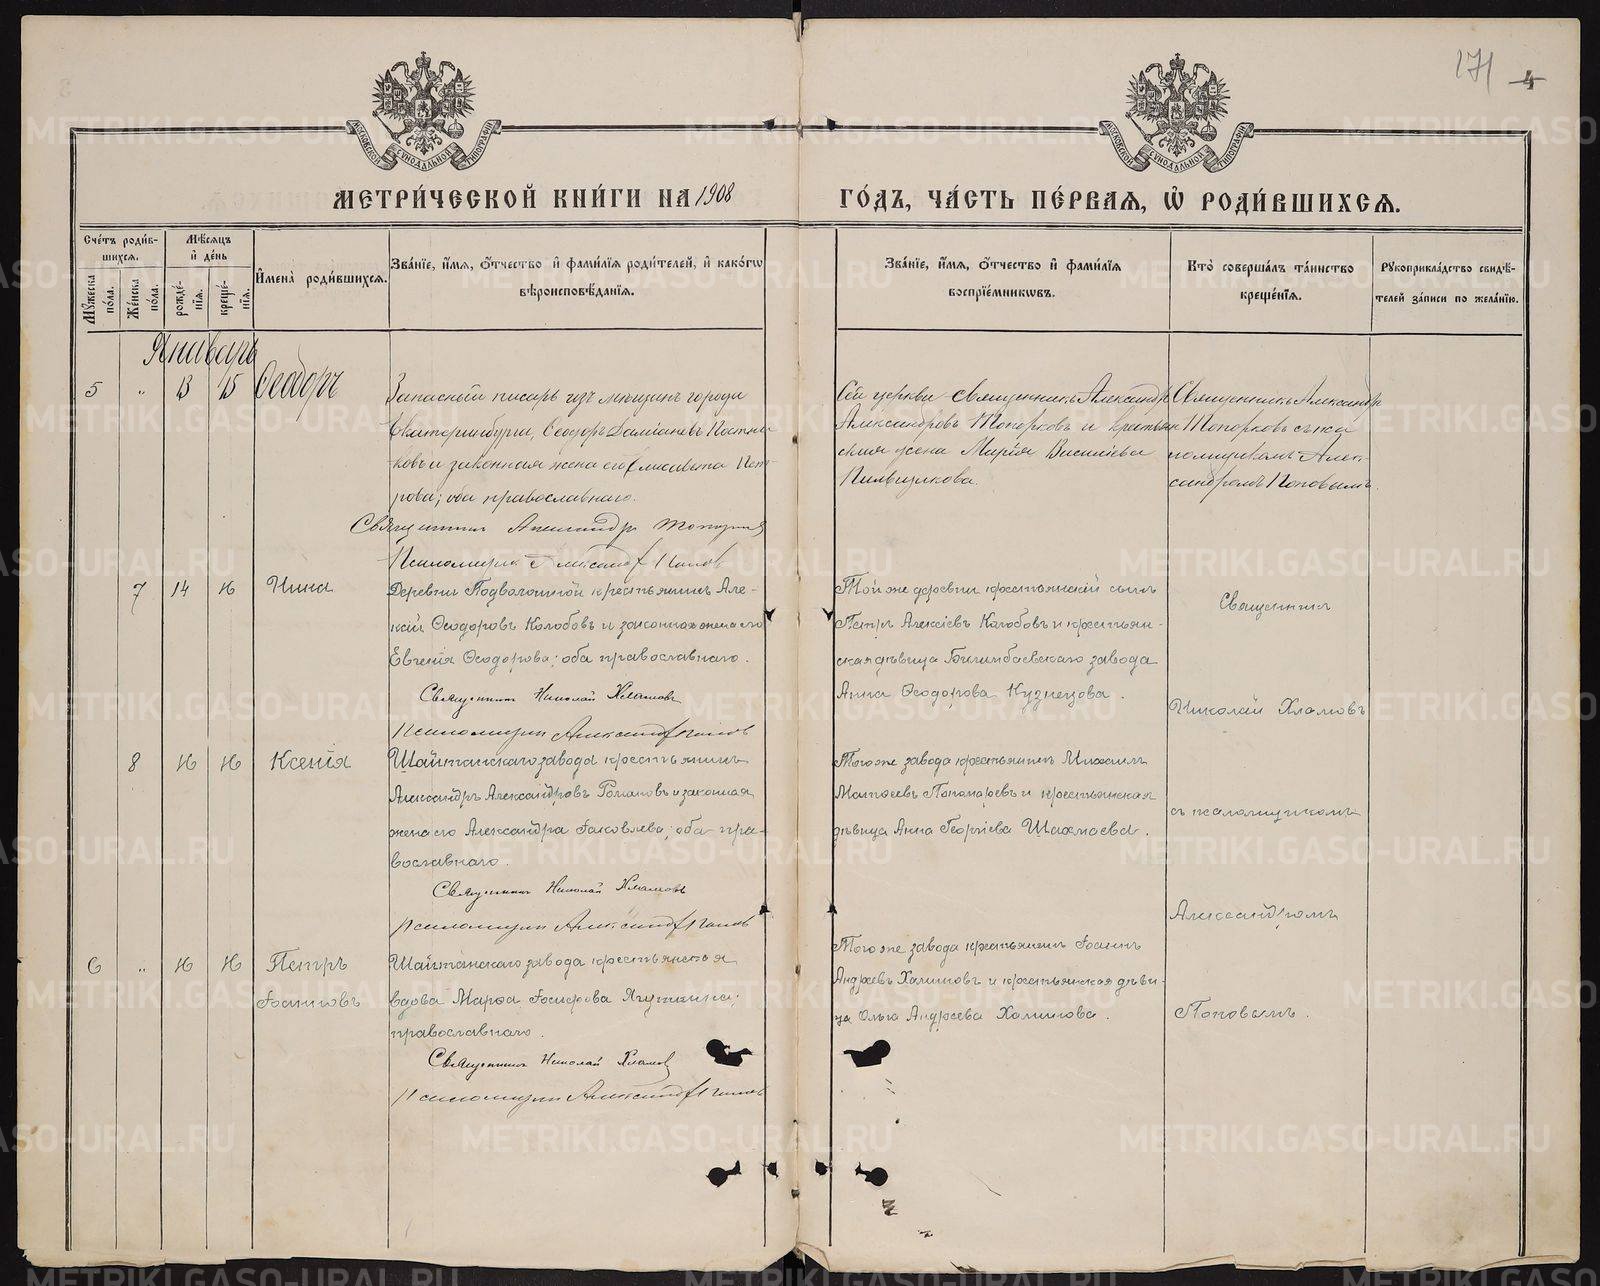 171 4
МОСКОВСКОЙ СУНОДАЛЬНОЙ ТИПОГРАФІИ
МОСКОВСКОЙ СУНОДАЛЬНОЙ ТИПОГРАФІИ
МЕТРИ́ЧЕСКОЙ КНИ́ГИ НА 1908
ГО́ДЪ, ЧА́СТЬ ПЕ́РВАѦ, Ѡ҆ РОДИ́ВШИХСѦ.
Сче́тъ роди́в-
шихсѧ.
Мꙋ́жеска по́ла.
Же́нска по́ла.
Мѣ́сѧцъ и҆ де́нь
рожде́-
нїѧ.
креще́-
нїѧ.
И҆мена̀ роди́вшихсѧ.
Зва́нїе, и҆́мѧ, ѻ҆́тчество и҆ фами́лїѧ роди́телей, и҆ како́гѡ
вѣроисповѣ́данїѧ.
Зва́нїе, и҆́мѧ, ѻ҆́тчество и҆ фами́лїѧ
воспрїе́мникѡвъ.
Кто̀ соверша́лъ та́инство
креще́нїѧ.
Рꙋкоприкла́дство свидѣ́-
телей за́писи по жела́нїю.
Январь
5 " 13 15 Ѳеодоръ
Запасный писарь изъ мѣщанъ города
Екатеринбурга, Ѳеодоръ Даміановъ Постни-
ковъ и законная жена его Елисавета Пет-
рова; оба православнаго.
Священникъ Александръ Топорковъ
Псаломщикъ Александръ Поповъ
Сей церкви священникъ Александръ
Александровъ Топорковъ и крестьян
ская жена Марія Василіева
Пильщикова.
Священникъ Александръ
Топорковъ съ пса
ломщикомъ Алек-
сандромъ Поповымъ.
7 14 и Нина
Деревни Подволошной крестьянинъ Але-
ксій Ѳеодоровъ Колобовъ и законная жена его
Евгенія Ѳеодорова; оба православнаго.
Священникъ Николай Хламовъ
Псаломщикъ Александръ Поповъ
Той же деревни крестьянскій сынъ
Петръ Алексіевъ Колобовъ и крестьян-
ская дѣвица Билимбаевскаго завода
Анна Ѳеодорова Кузнецова.
Священникъ
Николай Хламовъ
8 и и Ксенія
Шайтанскаго завода крестьянинъ
Александръ Александровъ Романовъ и законная
жена его Александра Іаковлева; оба пра-
вославнаго.
Священникъ Николай Хламовъ
Псаломщикъ Александръ Поповъ
Того же завода крестьянинъ Михаилъ
Матѳеевъ Пономаревъ и крестьянская
дѣвица Анна Георгіева Шахмаева.
съ псаломщикомъ
Александромъ
6 " и и Петръ
Іоанновъ
Шайтанскаго завода крестьянская
вдова Марѳа Іосифова Ягуткина;
православнаго.
Священникъ Николай Хламовъ
Псаломщикъ Александръ Поповъ
Того же завода крестьянинъ Іоаннъ
Андреевъ Халиновъ и крестьянская дѣви-
ца Ольга Андреева Халинова.
Поповымъ.